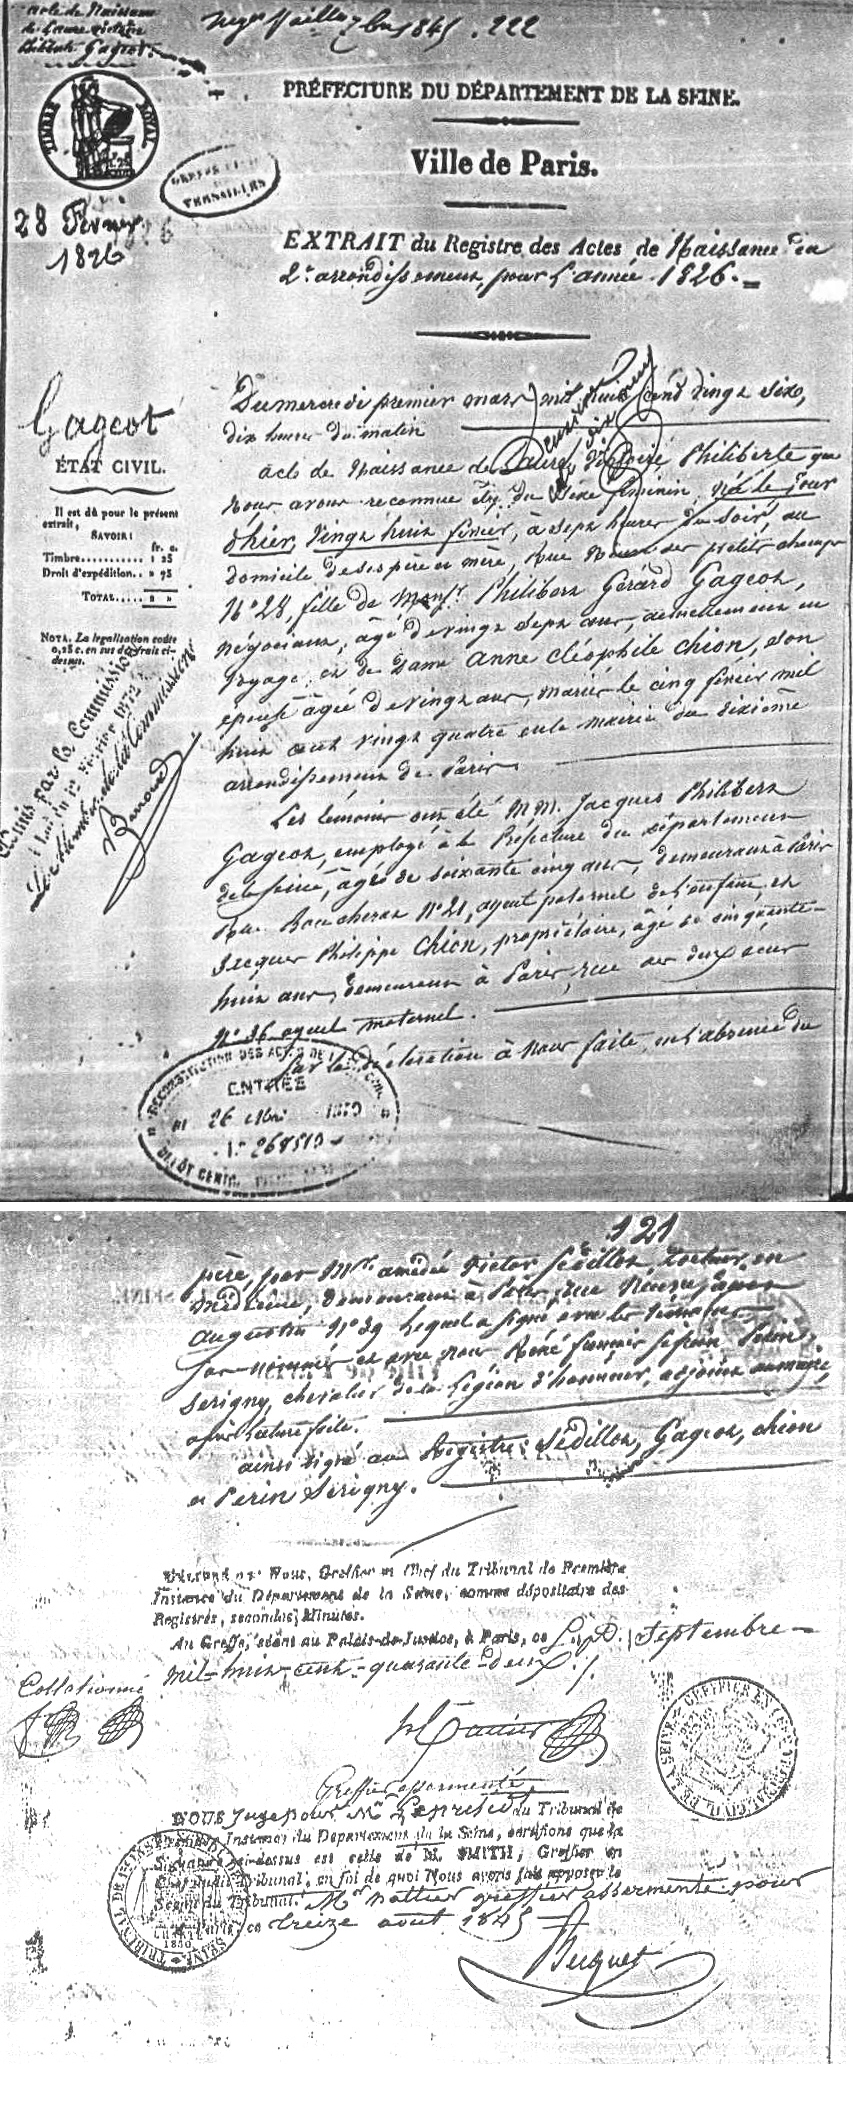 acte de Naissance
de Laure victoire
Philiberte Gageot.
7bre 1845. 222
PRÉFECTURE DU DÉPARTEMENT DE LA SEINE.
TIMBRE ROYAL
Ville de Paris.
VERSAILLES
28 Février
1826
EXTRAIT du Registre des Actes de Naissance du
2e arrondissement, pour l'année 1826.
Gageot
ÉTAT CIVIL.
Il est dû pour le présent
extrait,
SAVOIR:
fr. c.
Timbre........... 1 25
Droit d'expédition.. » 75
TOTAL..... » »
NOTA. La légalisation coûte
0,25 c. en sus des frais ci-
dessus.
Admis par la Commission
Le Membre de la Commission
Du mercredi premier mars mil huit cent vingt six,
dix heures du matin
acte de Naissance de Laure, Victoire Philiberte que
Nous avons reconnue être du Sexe féminin, née le jour
d'hier, vingt huit février, à sept heures du soir, au
domicile de ses père et mère, rue Neuve des petits champs
No 28, fille de Monsr Philibert Gérard Gageot,
négociant, âgé de vingt sept ans, actuellement en
voyage, et de Dame anne cléophile chion, son
épouse âgée de vingt ans, mariés le cinq février mil
huit cent vingt quatre en la mairie du dixième
arrondissement de Paris.
Les témoins ont été MM. Jacques Philibert
Gageot, employé à la Préfecture du département
de la Seine, âgé de soixante cinq ans, demeurant à Paris
rue Boucherat No 21, ayeul paternel de l'enfant, et
Jacques Philippe Chion, propriétaire, âgé de cinquante-
huit ans, demeurant à Paris, rue des deux
No 36 ayeul maternel.
Sur la déclaration à Nous faite, en l'absence du
RECONSTITUTION DES ACTES DE L'ÉTAT CIVIL
ENTRÉE
26
No 268510
DÉPÔT CENTRAL
121
père, par Mr amédée Victor Sédillot, docteur en
médecine, demeurant à Paris, rue Neuve Saint
augustin No 39 lequel a signé avec les témoins
sus-nommés et avec nous René Perin
Serigny, chevalier de la Légion d'honneur, adjoint au maire,
après lecture faite.
ainsi signé au Registre: Sédillot, Gageot, chion
et Perin Serigny.
Délivré par Nous, Greffier en Chef du Tribunal de Première
Instance du Département de la Seine, comme dépositaire des
Registres, secondes Minutes.
Au Greffe, séant au Palais-de-Justice, à Paris, ce Septembre
mil-huit-cent-quarante-deux
Collationné
Greffier assermenté
NOUS Juge pour Mr le Président du Tribunal de
Première Instance du Département de la Seine, certifions que la
Signature ci-dessus est celle de M. SMITH, Greffier en
Chef dudit Tribunal; en foi de quoi Nous avons fait apposer le
Sceau du Tribunal. Mr greffier assermenté pour
Paris, ce treize août 1845